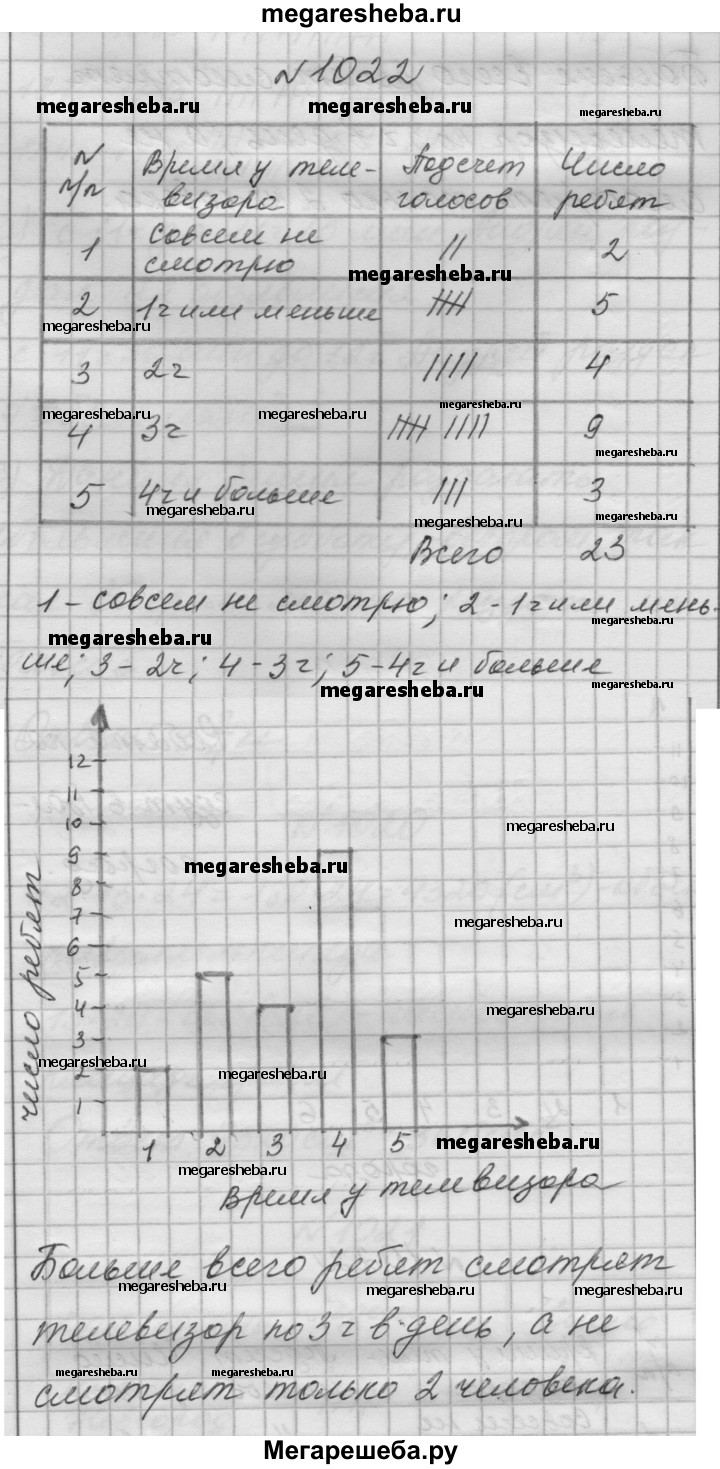 megaresheba.ru
№1022
megaresheba.ru megaresheba.ru megaresheba.ru
N п/п Время у телевизора Подсчет голосов Число ребят
1 совсем не смотрю || 2
megaresheba.ru
2 1ч или меньше 5
megaresheba.ru
3 2ч //// 4
megaresheba.ru megaresheba.ru megaresheba.ru
4 3ч 9
megaresheba.ru
5 4ч и больше /// 3
megaresheba.ru megaresheba.ru megaresheba.ru
Всего 23
1 - совсем не смотрю; 2 - 1ч или мень-
megaresheba.ru megaresheba.ru
ше; 3 - 2ч; 4 - 3ч; 5 - 4ч и больше
megaresheba.ru megaresheba.ru
12
11
10
megaresheba.ru
9
megaresheba.ru
8
7
megaresheba.ru
6
5
4
megaresheba.ru
3
megaresheba.ru
2
megaresheba.ru
1
число ребят
1 2 3 4 5
megaresheba.ru
megaresheba.ru
Время у телевизора
Больше всего ребят смотрят
megaresheba.ru megaresheba.ru megaresheba.ru
телевизор по 3 ч в день, а не
megaresheba.ru megaresheba.ru megaresheba.ru
смотрят только 2 человека.
Мегарешеба.ру